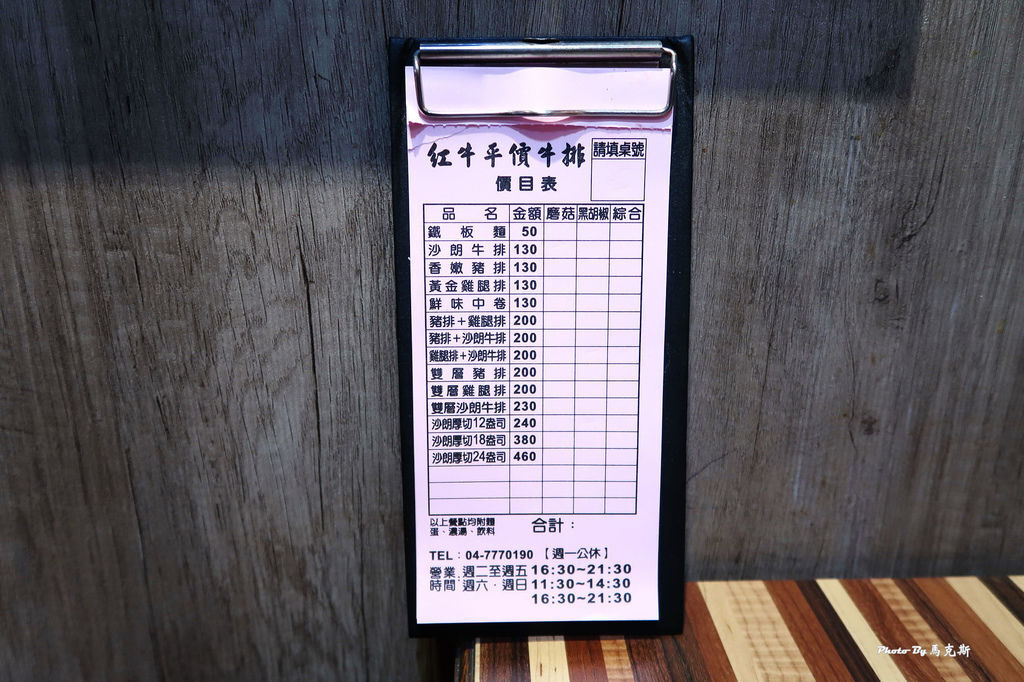 紅牛平價牛排
請填桌號
價目表
品名 金額 磨菇 黑胡椒 綜合
鐵板麵 50
沙朗牛排 130
香嫩豬排 130
黃金雞腿排 130
鮮味中卷 130
豬排+雞腿排 200
豬排+沙朗牛排 200
雞腿排+沙朗牛排 200
雙層豬排 200
雙層雞腿排 200
雙層沙朗牛排 230
沙朗厚切12盎司 240
沙朗厚切18盎司 380
沙朗厚切24盎司 460
以上餐點均附麵
蛋、濃湯、飲料
合計：
TEL：04-7770190【週一公休】
營業 週二至週五 16:30~21:30
時間 週六．週日 11:30~14:30
16:30~21:30
Photo By 馬克斯